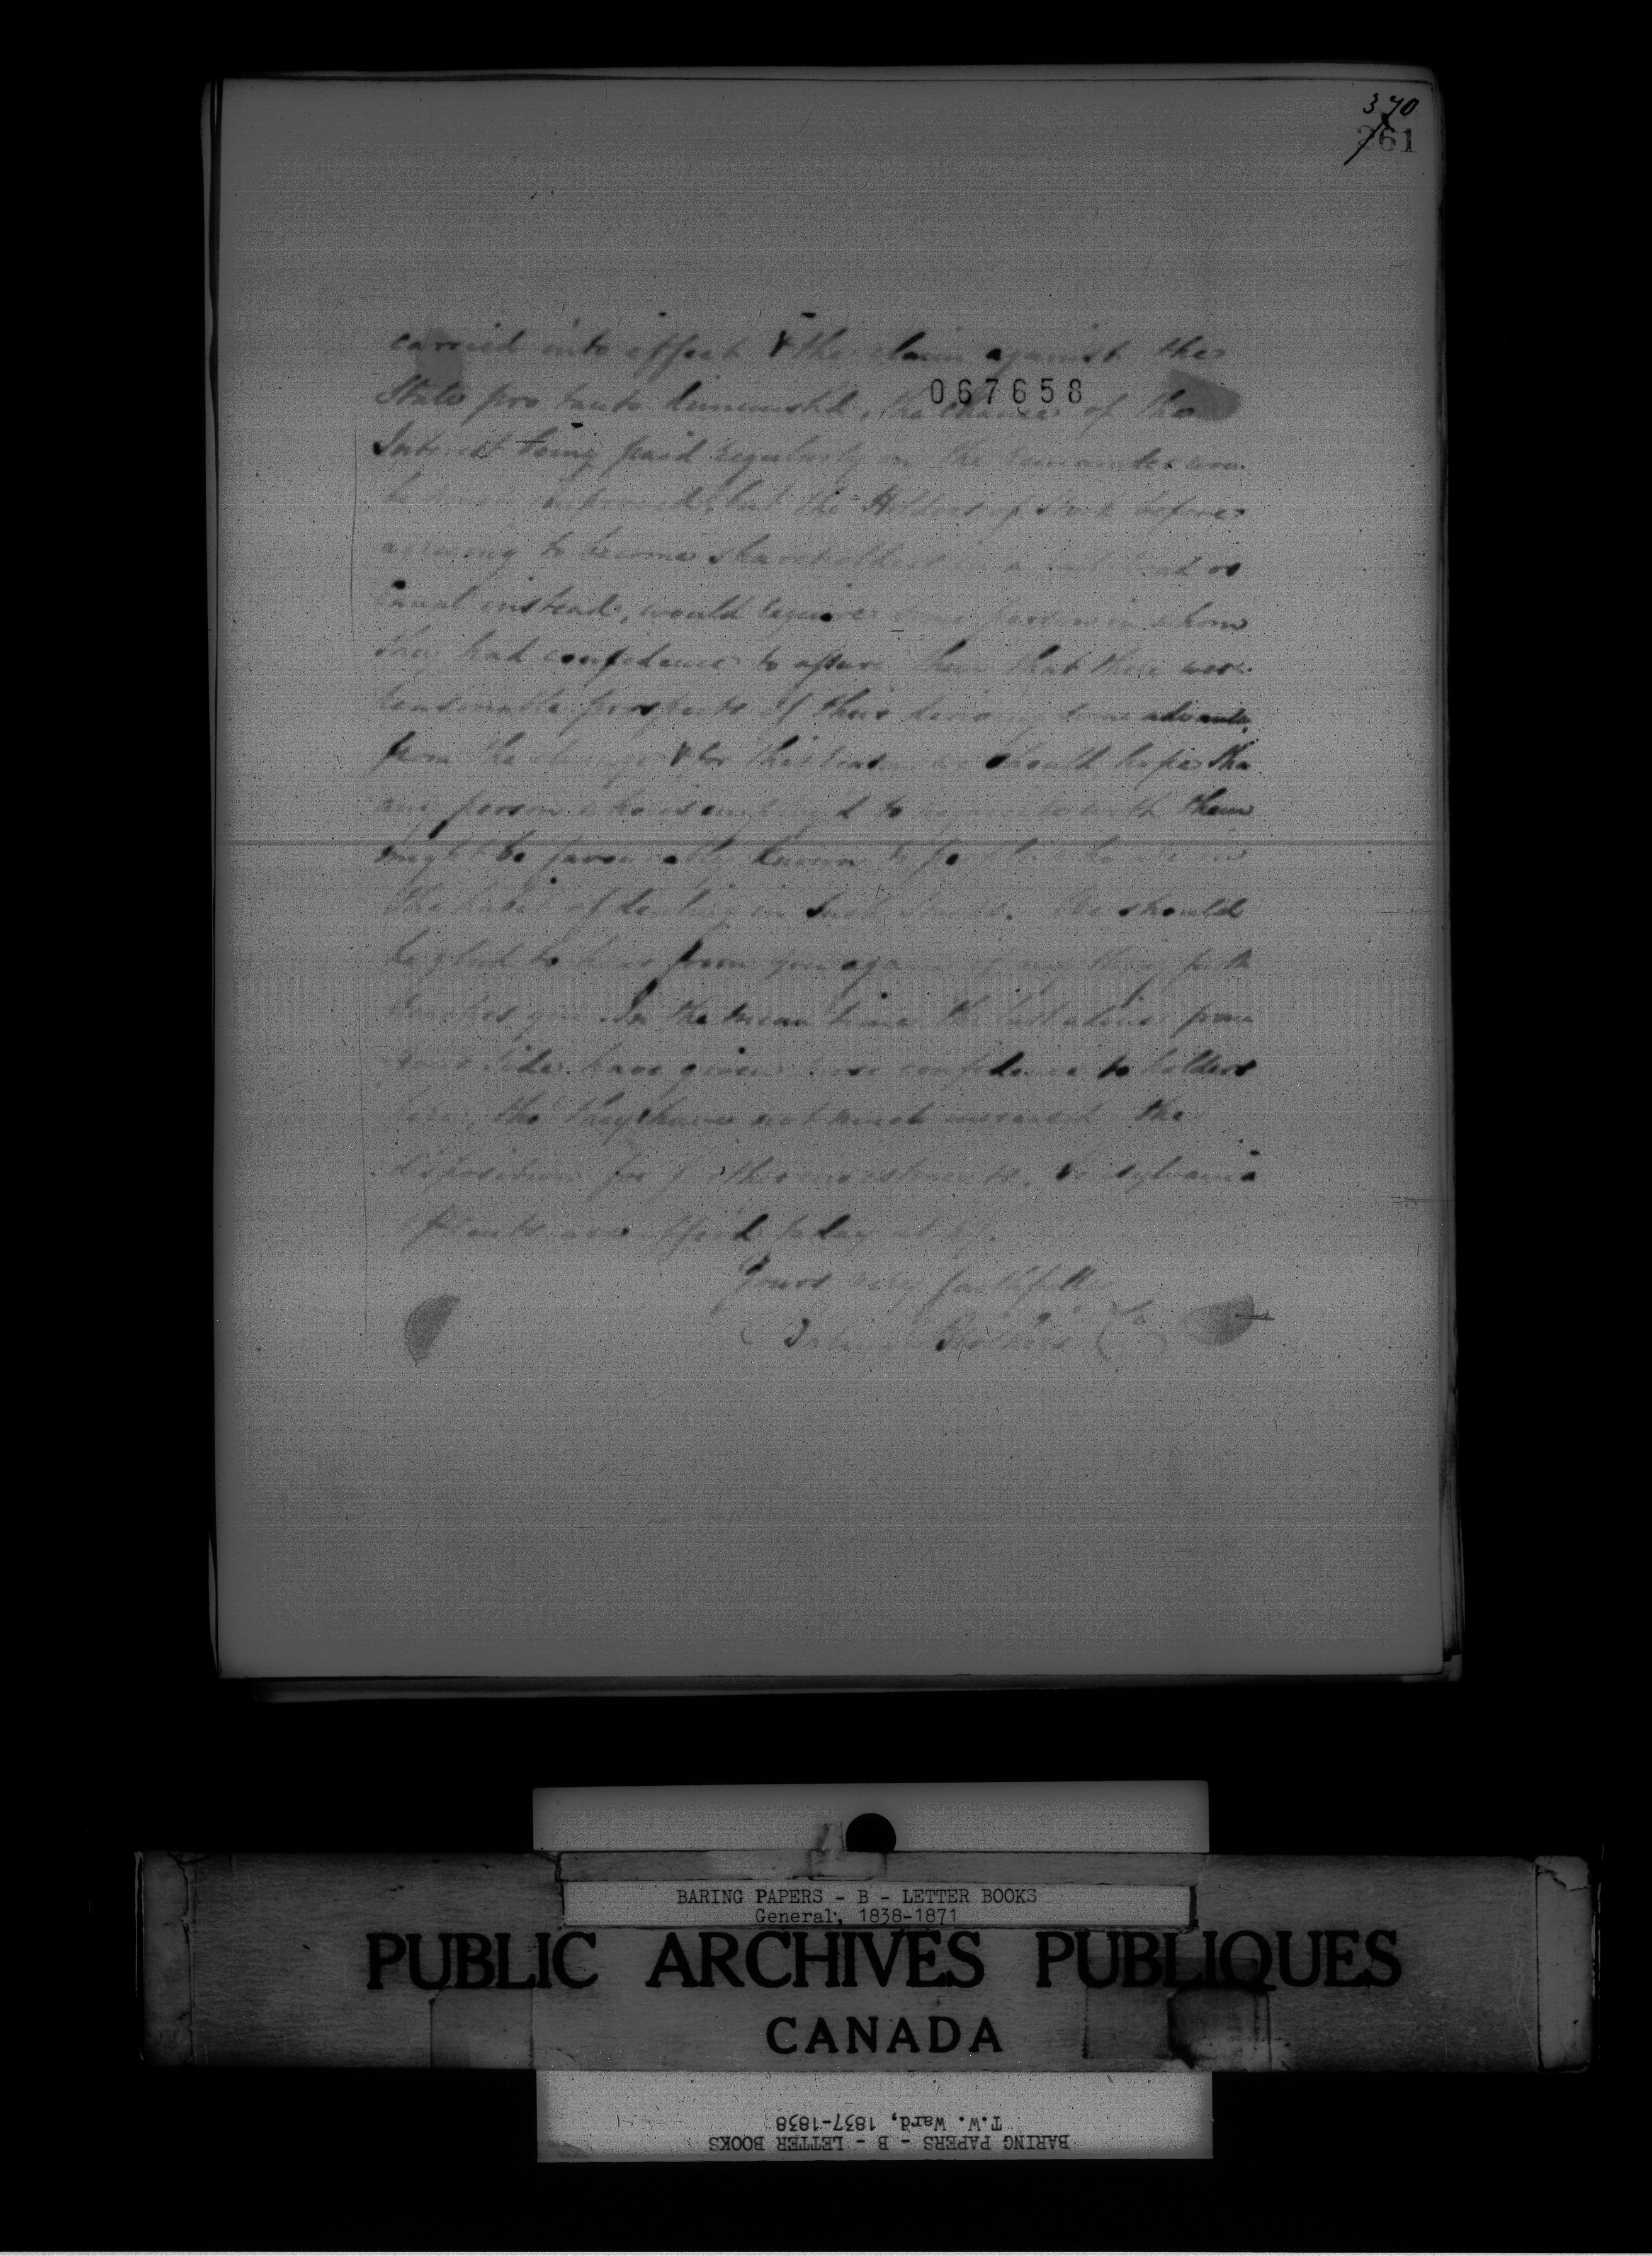 370
261
carried into effect & the claim against the
067658
State pro tanto diminish'd, the chance of the
Interest being paid regularly on the remainder
be much improved, but the Holders of Stock before
agreeing to become shareholders in a Rail Road or
Canal instead, would require some person in whom
they had confidence to assure them that there were
reasonable prospects of their deriving some
from the change & for this reason we should hope tha
any person who is employ'd to negociate with them
might be favourably known to people who are in
the habit of dealing in such Stocks. We should
be glad to hear from you again if any thing
reaches you. In the mean time the last advices from
your side have given more confidence to holders
here, tho' they have not much increased the
disposition for further investments.
are offer'd today at
Yours very faithfully
Baring Brothers & Co
BARING PAPERS - B - LETTER BOOKS
General, 1838-1871
PUBLIC ARCHIVES PUBLIQUES
CANADA
T.W. Ward, 1837-1838
BARING PAPERS - B - LETTER BOOKS